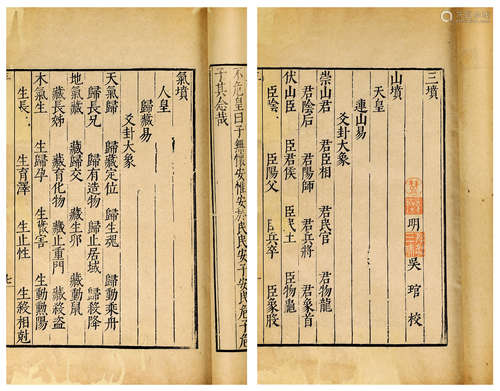 三墳
明 吳琯 校
山墳
天皇
連山易
爻卦大象
崇山君 君臣相 君民官 君物龍
君陰后 君陽師 君兵將 君象首
伏山臣 臣君侯 臣民士 臣物龜
臣陰 臣陽父 臣兵卒 臣象股
不危皇曰子
子其念哉
氣墳
人皇
歸藏易
爻卦大象
天氣歸 歸藏定位 歸生魂 歸動乘舟
歸長兄 歸育造物 歸止居域 歸殺降
地氣藏 藏歸交 藏生卵 藏動鼠
藏長姊 藏育化物 藏止重門 藏殺盜
木氣生 生歸孕 生藏害 生動勲陽
生長 生育澤 生止性 生殺相剋